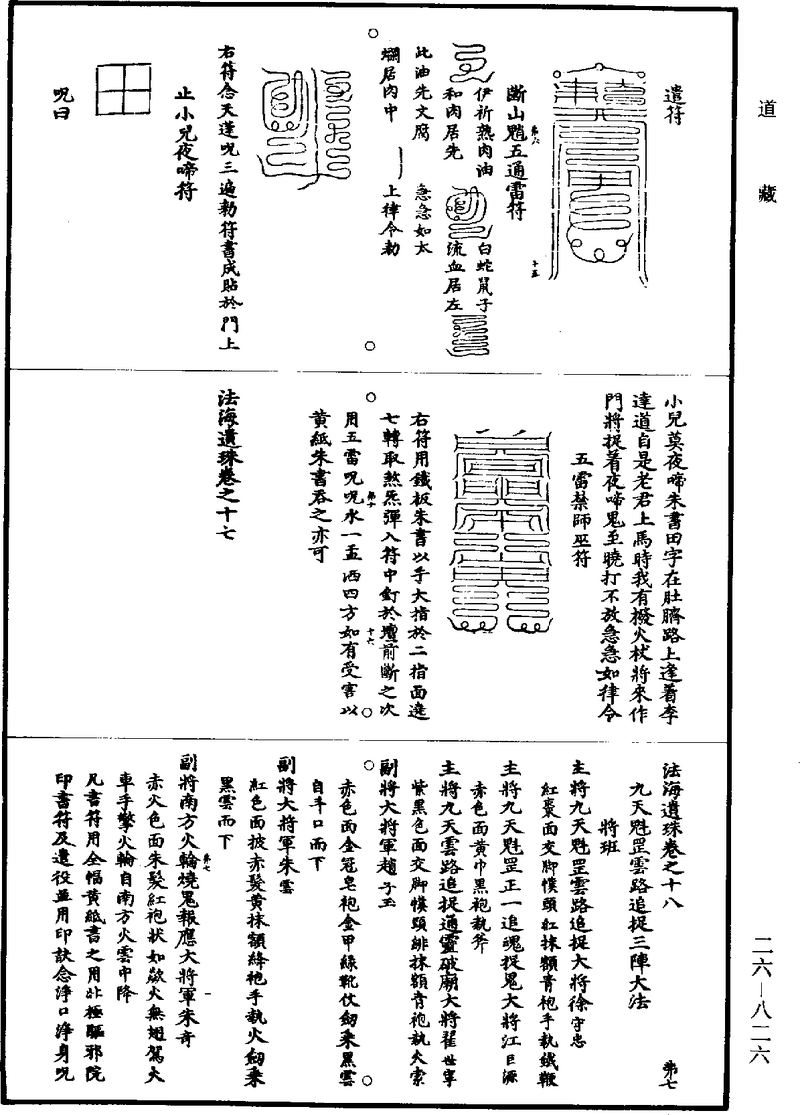 道藏
遣符
斷山魈五通雷符
伊祈熟肉油
和肉居先
白蛇鼠子
流血居左
此油先文腐
爛居肉中
急急如太
上律令勑
右符念天蓬呪三遍勑符書成貼於門上
止小兒夜啼符
呪曰
小兒莫夜啼朱書田字在肚臍路上逢着李
達道自是老君上馬時我有撥火杖將來作
門將捉着夜啼鬼至曉打不放急急如律令
五雷禁師巫符
右符用鐵板朱書以手大指於二指面遶
七轉取煞炁彈入符中釘於壇前斷之次
用五雷呪呪水一盃洒四方如有受害以
黃紙朱書吞之亦可
法海遺珠卷之十七
法海遺珠卷之十八
弟七
九天魁罡雲路追捉三陣大法
將班
主將九天魁罡雲路追捉大將徐守忠
紅棗面交脚幞頭紅抹額青袍手執鐵鞭
主將九天魁罡正一追魂捉鬼大將江巨源
赤色面黃巾黑袍執斧
主將九天雲路追捉通靈破廟大將翟世寧
紫黑色面交脚幞頭緋抹額青袍執火索
副將大將軍趙子玉
赤色面金冠皂袍金甲綠靴仗劒乘黑雲
自斗口而下
副將大將軍朱雲
紅色面披赤髮黃抹額絳袍手執火劒乘
黑雲而下
副將南方火輪燒鬼報應大將軍朱奇
赤火色面朱髮紅袍狀如歘火無翅駕火
車手擎火輪自南方火雲中降
凡書符用全幅黃紙書之用北極驅邪院
印書符及遣役並用印訣念淨口淨身呪
二六—八二六